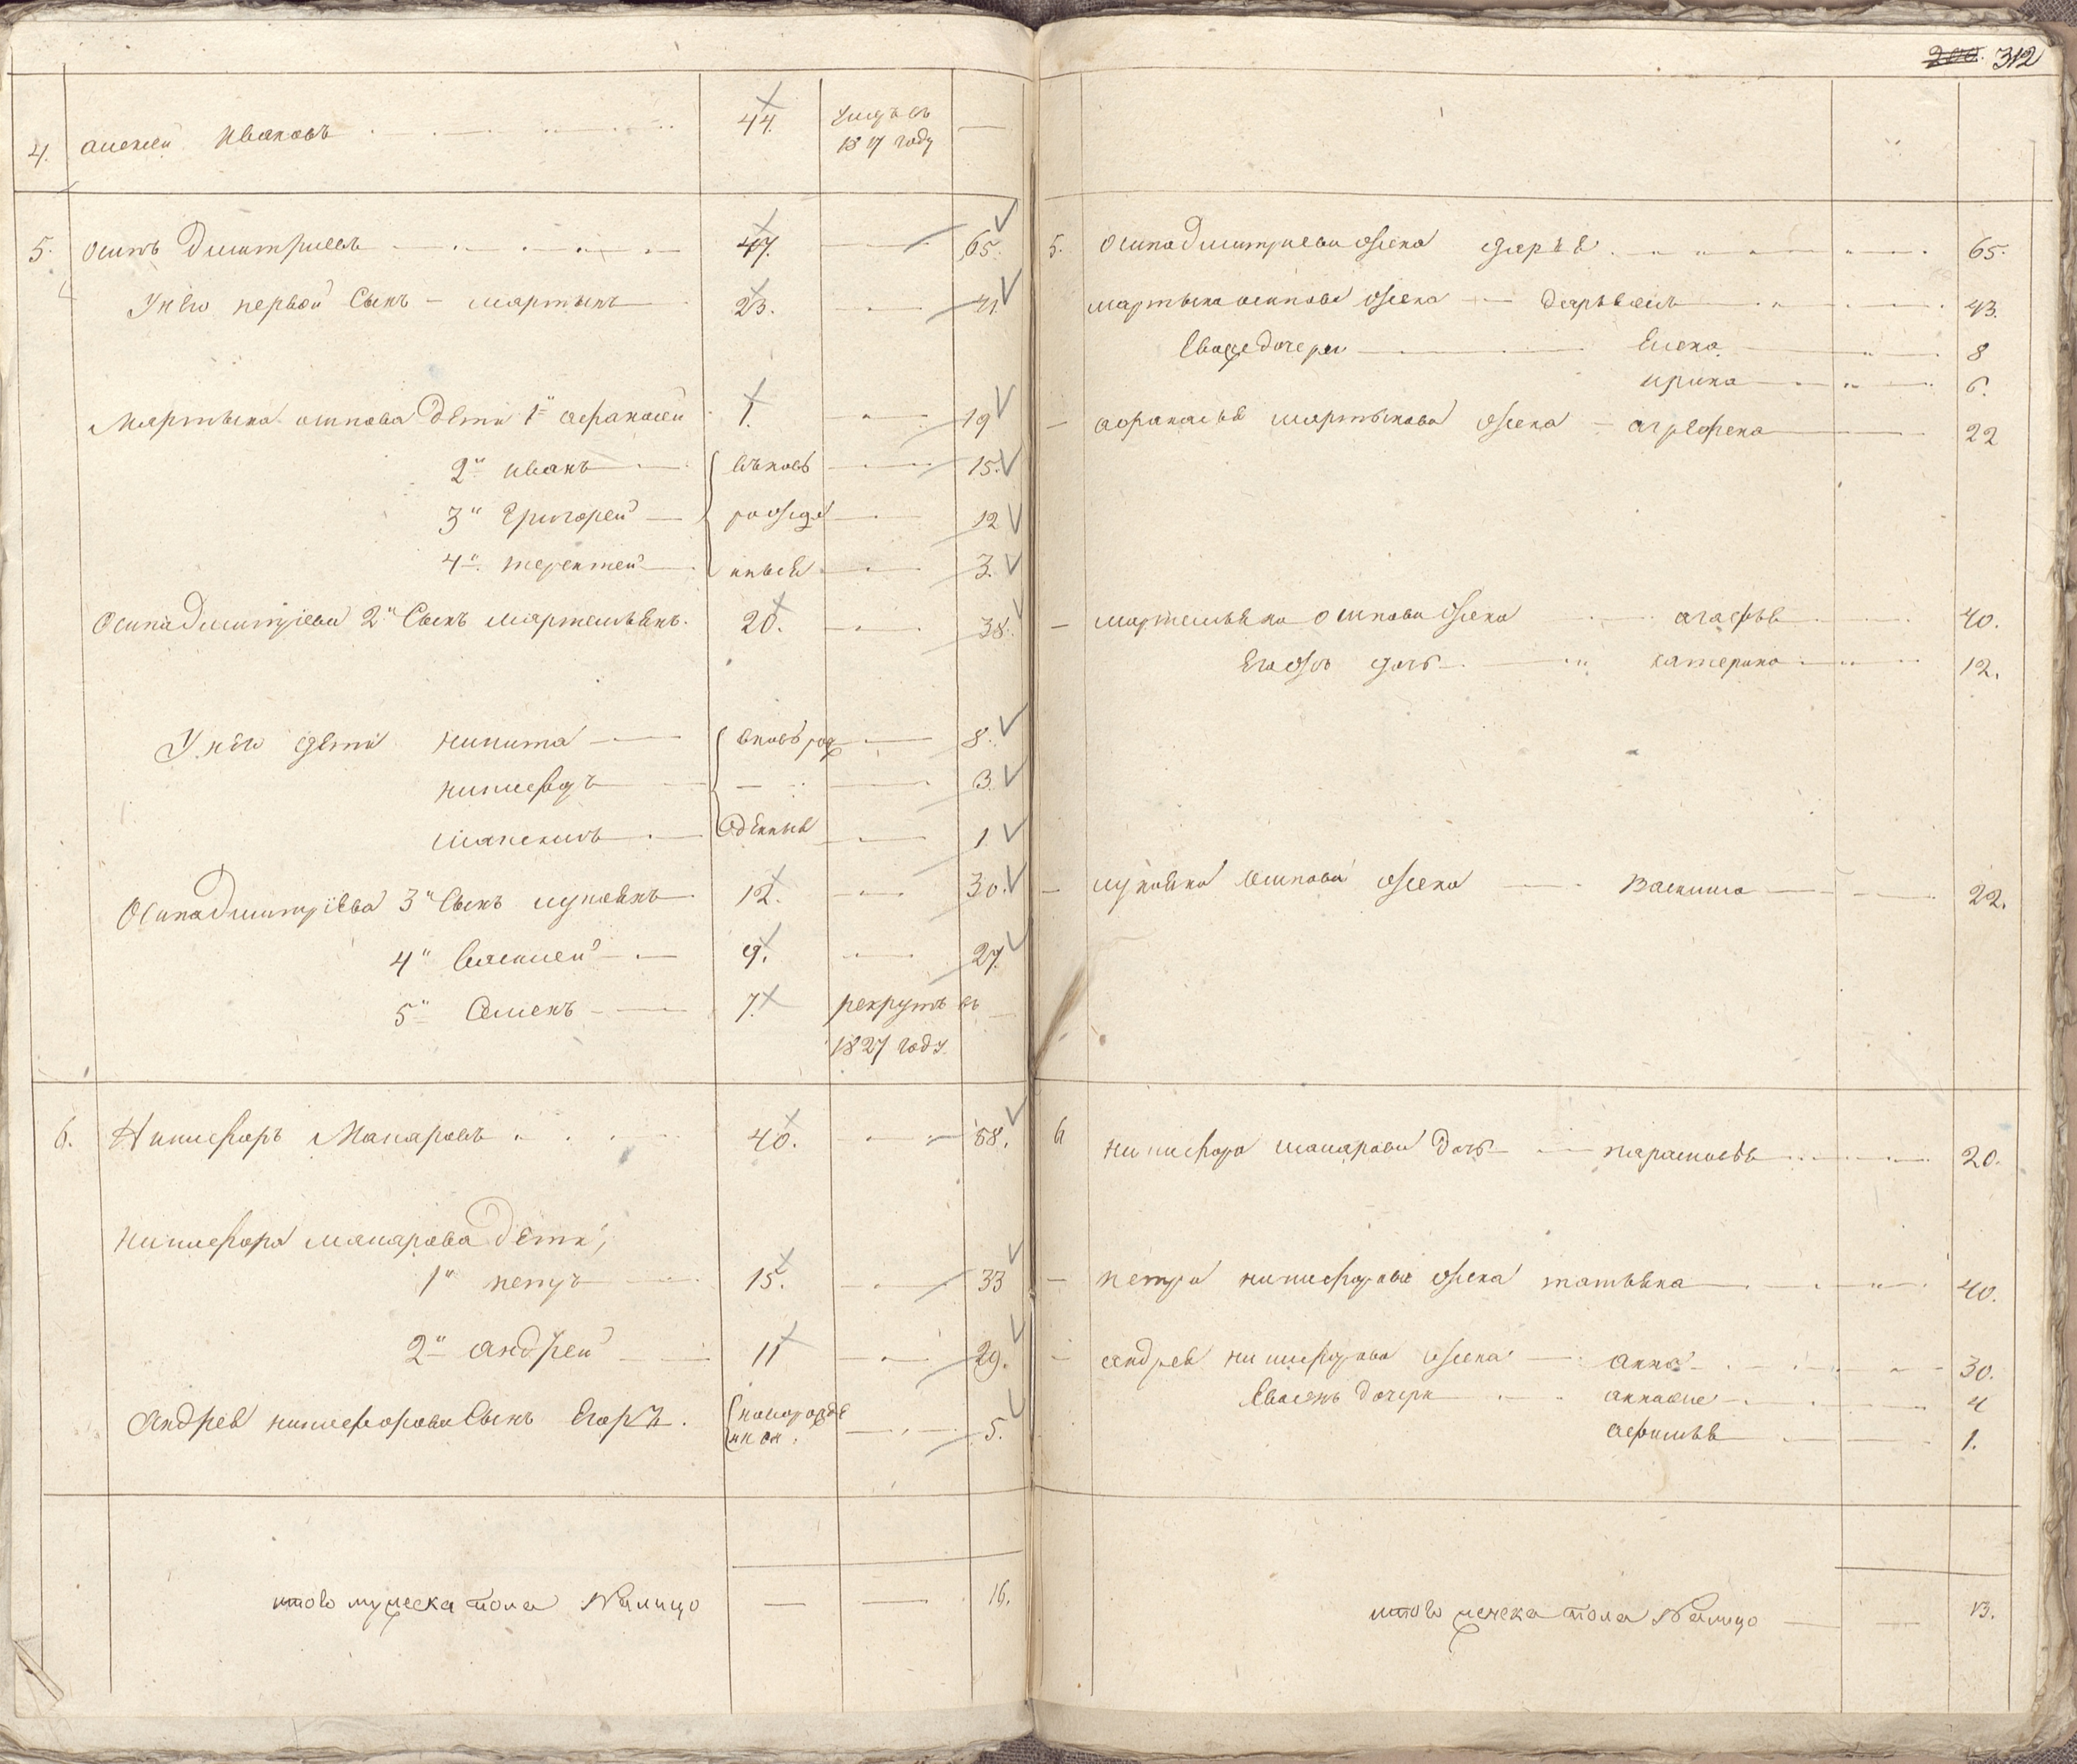 312
4. алексей Ивановъ 44. умръ въ
1817 году
5. осипъ Дмитриевъ 47. 65.
У нево первой Сынъ мартынъ 23. 41.
Мартына осипова Дети 1й афанасей 1. 19
2й иванъ вновь 15.
3й Григорей рожде 12
4й терентей нныя 3.
Осипа Дмитриева 2й Сынъ мартемьянъ. 20. 38.
У нево дети никита вновь рож 8.
никифоръ 3.
максимъ денныя 1
Осипа Дмитриева 3й Сынъ лукоянъ 12. 30.
4й Василей 9. 27.
5й Семенъ 7. рекрутъ въ
1827 году
6. Никифоръ Макаровъ 40. 58.
никифора макарова Дети,
1й петръ 15. 33
2й андрей 11 29.
Андрея никифорова Сынъ Егоръ. новорожде
нной 5.
итого мужеска пола Налицо 16.
5. Осипа дмитриева жена дарья 65.
мартына осипова жена 43.
Елена 8
ирина 6.
афанасья мартынова жена аграфена 22
мартемьяна осипова жена агафья 40.
Егожъ дочь катерина 12.
лукояна осипова жена 22.
6 никифора макарова дочь парасковья 20.
петра никифорова жена татьяна 40.
андрея никифорова жена анна 30.
дочери 4
афимья 1.
итого женска пола Налицо 13.